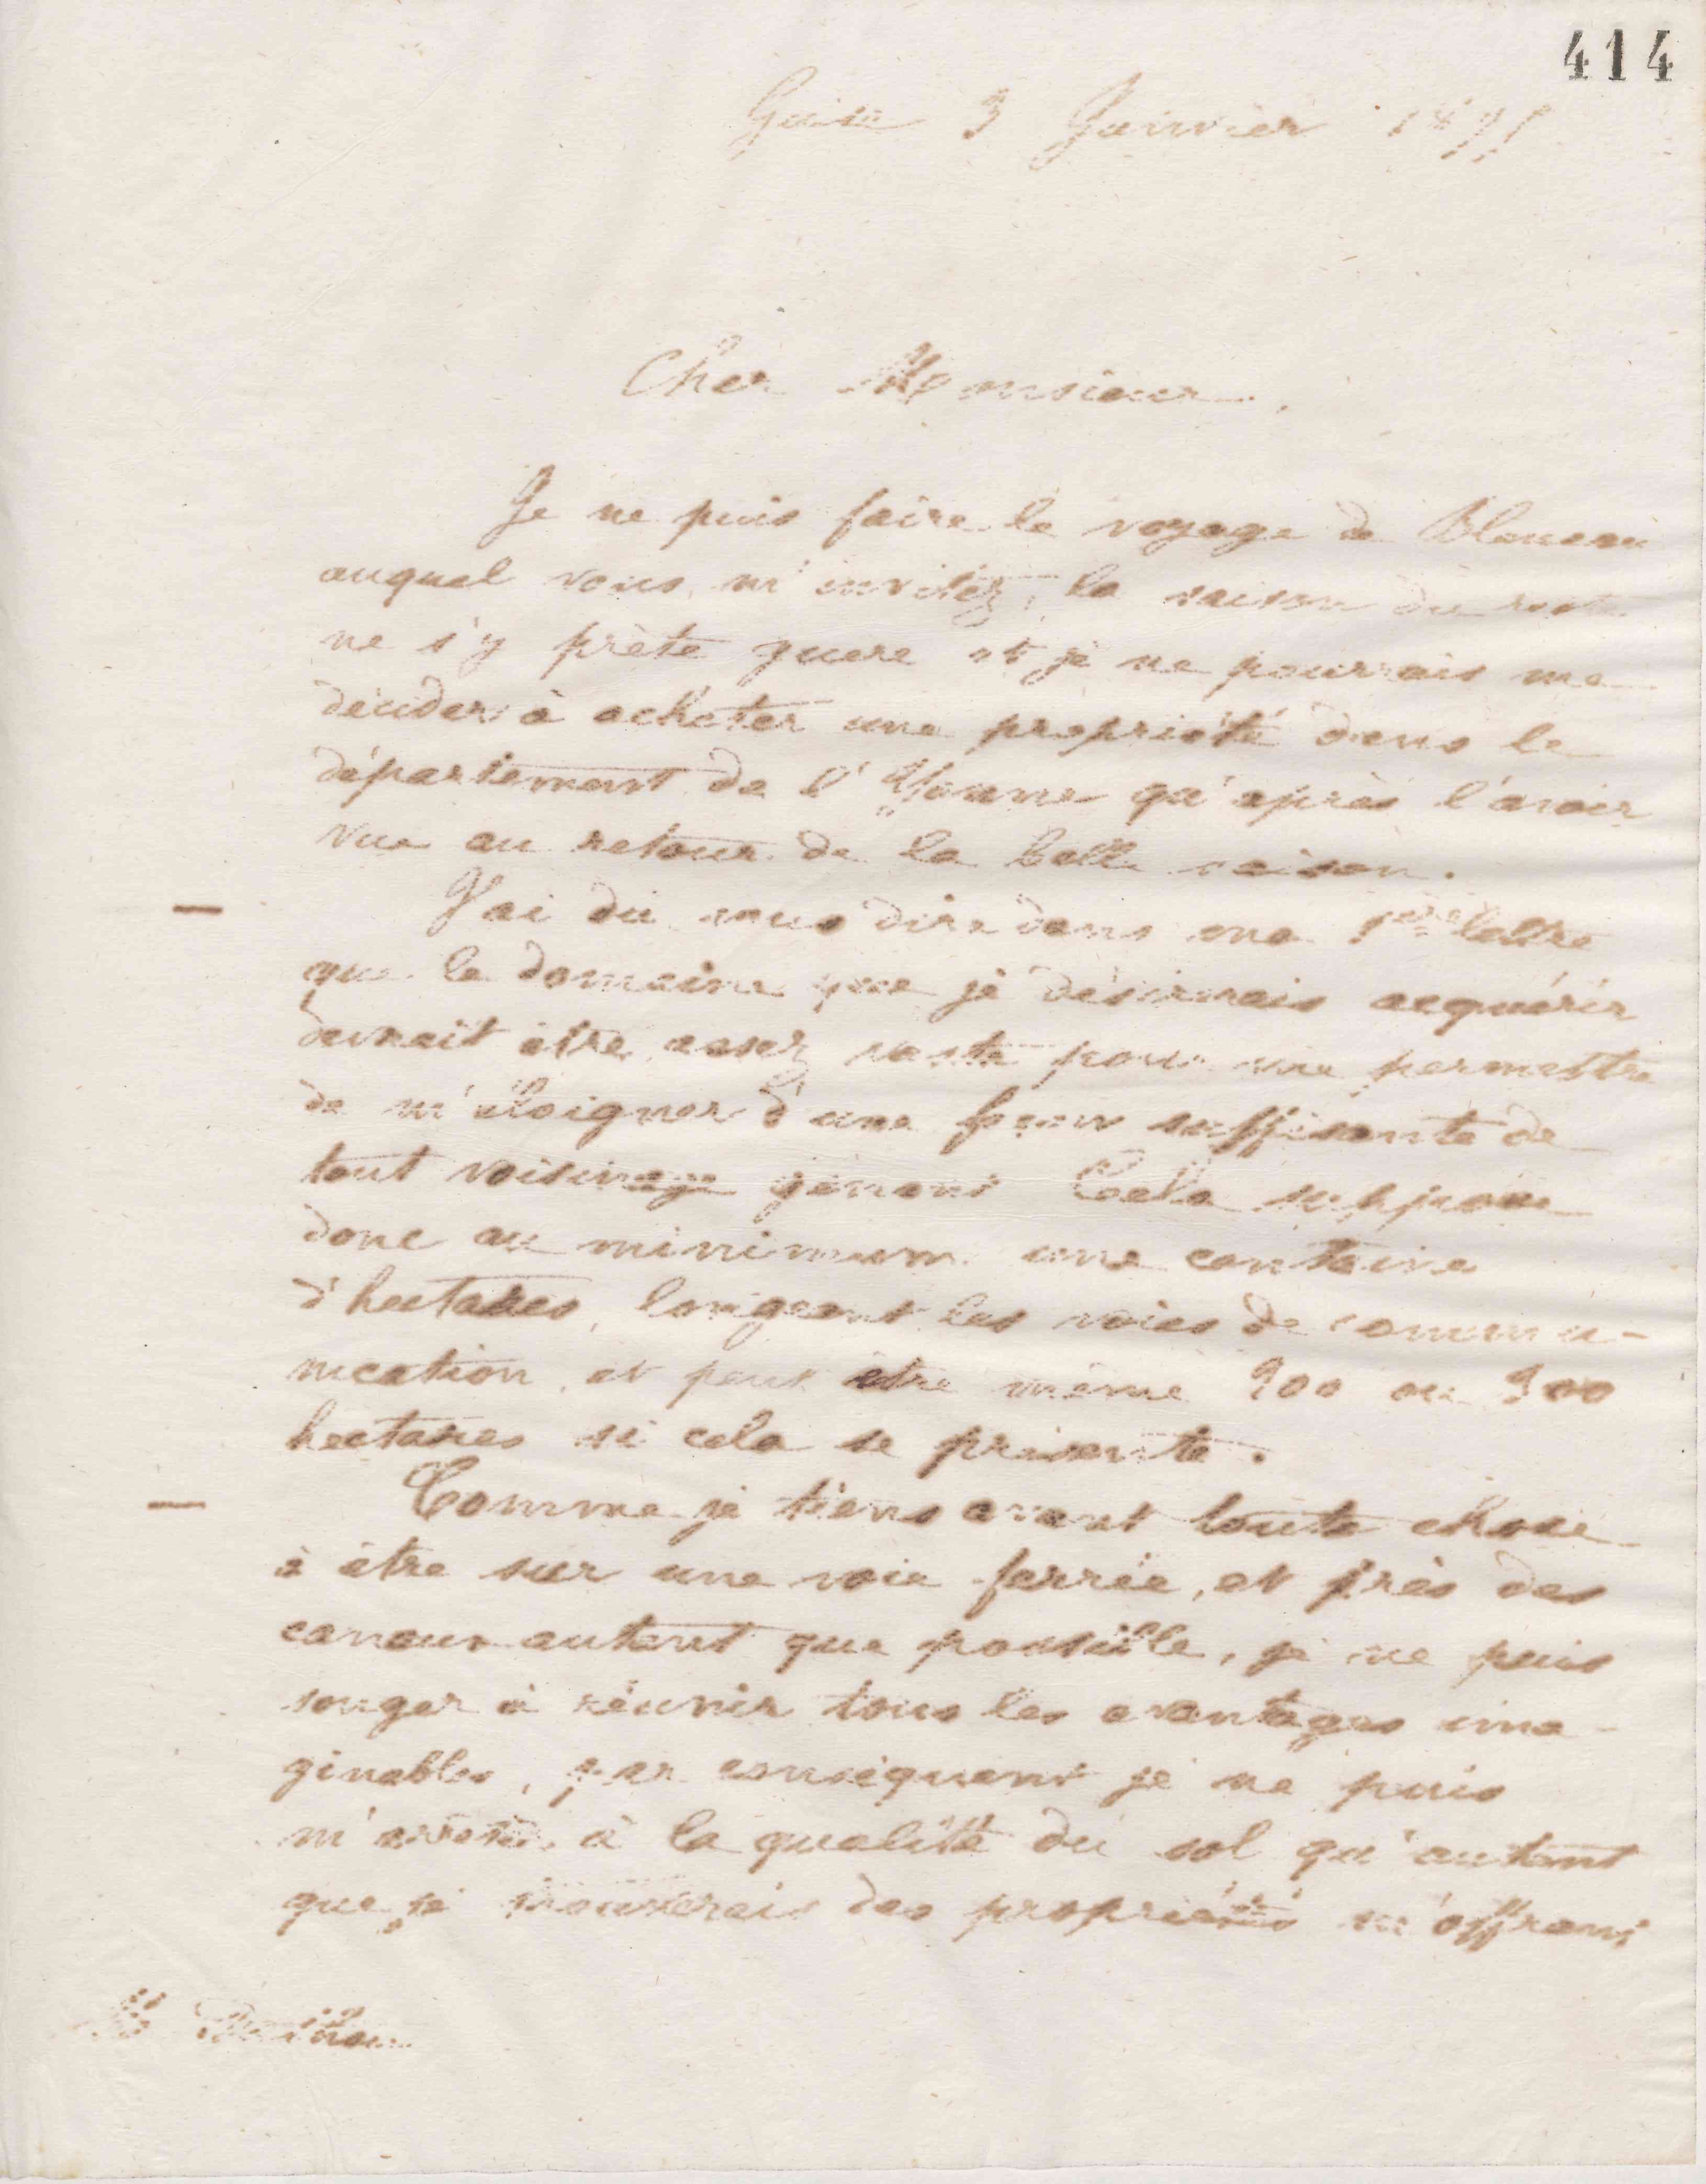 414
Guise 3 Janvier 18
Cher Monsieur,
Je ne puis faire le voyage de Bleneau
auquel vous m'invitez, la saison du reste
ne s'y prête guere et je ne pourrais me
décider à acheter une propriété dans le
département de l'Yonne qu'après l'avoir
vue au retour de la belle saison.
J'ai du vous dire dans ma 1ère lettre
que le domaine que je désirerais acquérir
devrait être assez vaste pour me permettre
de m'éloigner d'une façon suffisante de
tout voisinage gênant Cela suppose
donc au minimum une centaine
d'hectares, longeant les voies de commu-
nication, et peut être même 200 ou 300
hectares si cela se présente.
Comme je tiens avant toute chose
à être sur une voie ferrée, et près des
canaux autant que possible, je ne puis
songer à réunir tous les avantages ima-
ginables, par conséquent je ne puis
m'arrêter à la qualité du sol qu'autant
que je trouverais des propriétés m'offrant
M